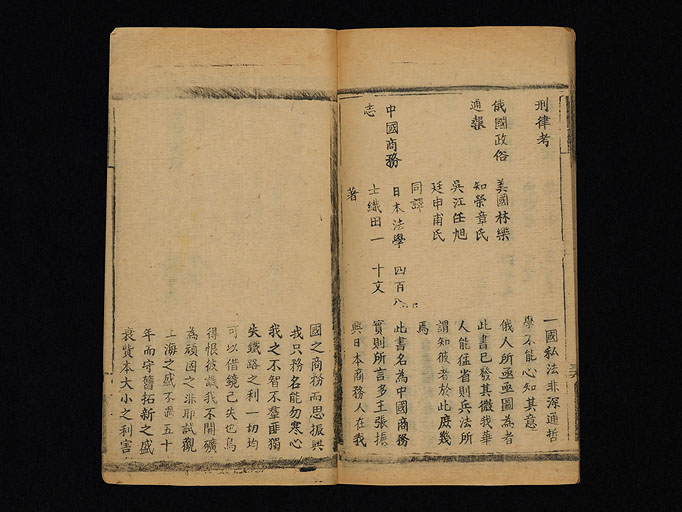 刑律考
一國私法非深通哲
學不能心知其意
俄國政俗
通報
美國林樂
知榮章氏
吳江任旭
廷申甫氏
同譯
俄人所亟亟圖為者
此書已發其微我華
人能猛省則兵法所
謂知彼者於此庶幾
焉
中國商務
志
日本法學
士織田一
著
四百八
十文
此書名為中國商務
實則所言多主張振
興日本商務人在我
國之商務而思振興
我只務名能勿寒心
我之不智不羣匪獨
失鐵路之利一切均
可以借鏡己失也烏
得恨彼譏我不開礦
為頑固之非耶試觀
上海之盛不過五十
年而守舊拓新之盛
衰貲本大小之利害